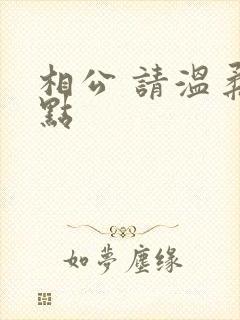 相公 請溫柔
點
如夢塵缘